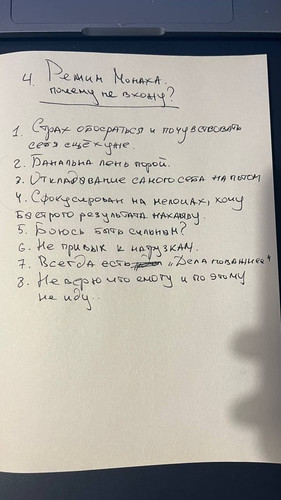 4. Режим Монаха.
почему не вхожу?
1. Страх обосраться и почувствовать
себя ещё хуже.
2. Банальна лень порой.
3. Откладывание самого себя на потом
4. Сфокусирован на мелочах, хочу
быстрого результата нахаляву.
5. Боюсь быть сильным?
6. Не привык к нагрузкам.
7. Всегда есть "Дела поважнее"
8. Не верю что смогу и по этому
не иду..